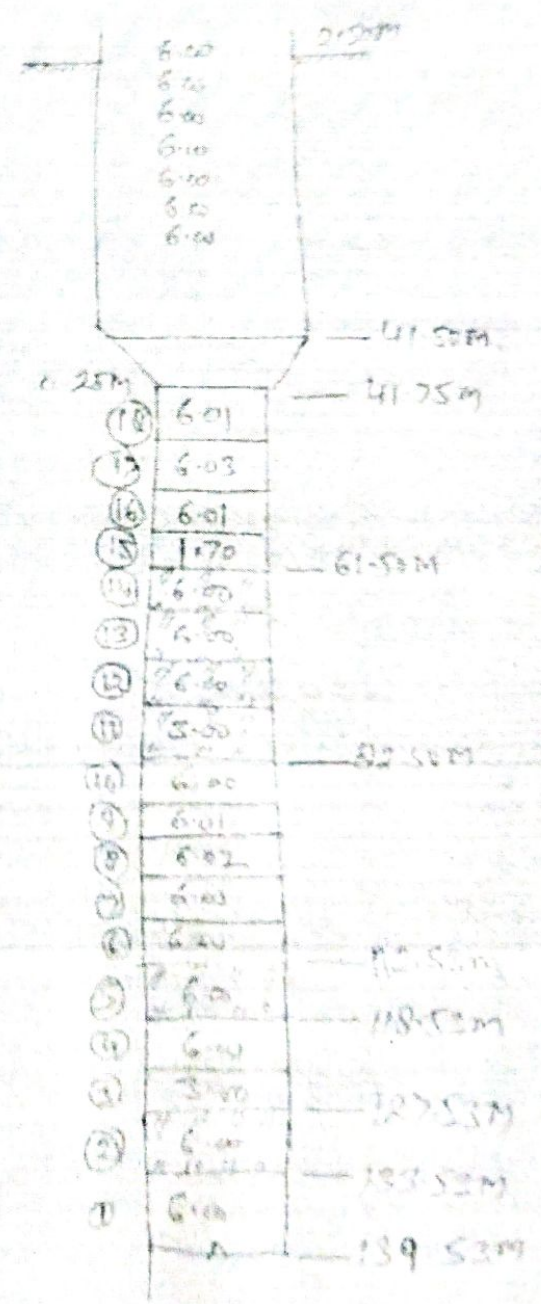 6.00
6.00
6.00
6.00
6.00
6.00
6.00
41.50m
0.25M
41.75m
18 6.01
17 6.03
16 6.01
15 1.70
61.50M
14 6.00
13 6.00
12 6.00
11 3.00
82.50M
10 6.00
9 6.01
8 6.02
7 6.00
6 6.00
112.53m
5 6.00
118.53m
4 6.00
3 3.00
127.53M
2 6.00
133.53M
1 6.00
139.53m